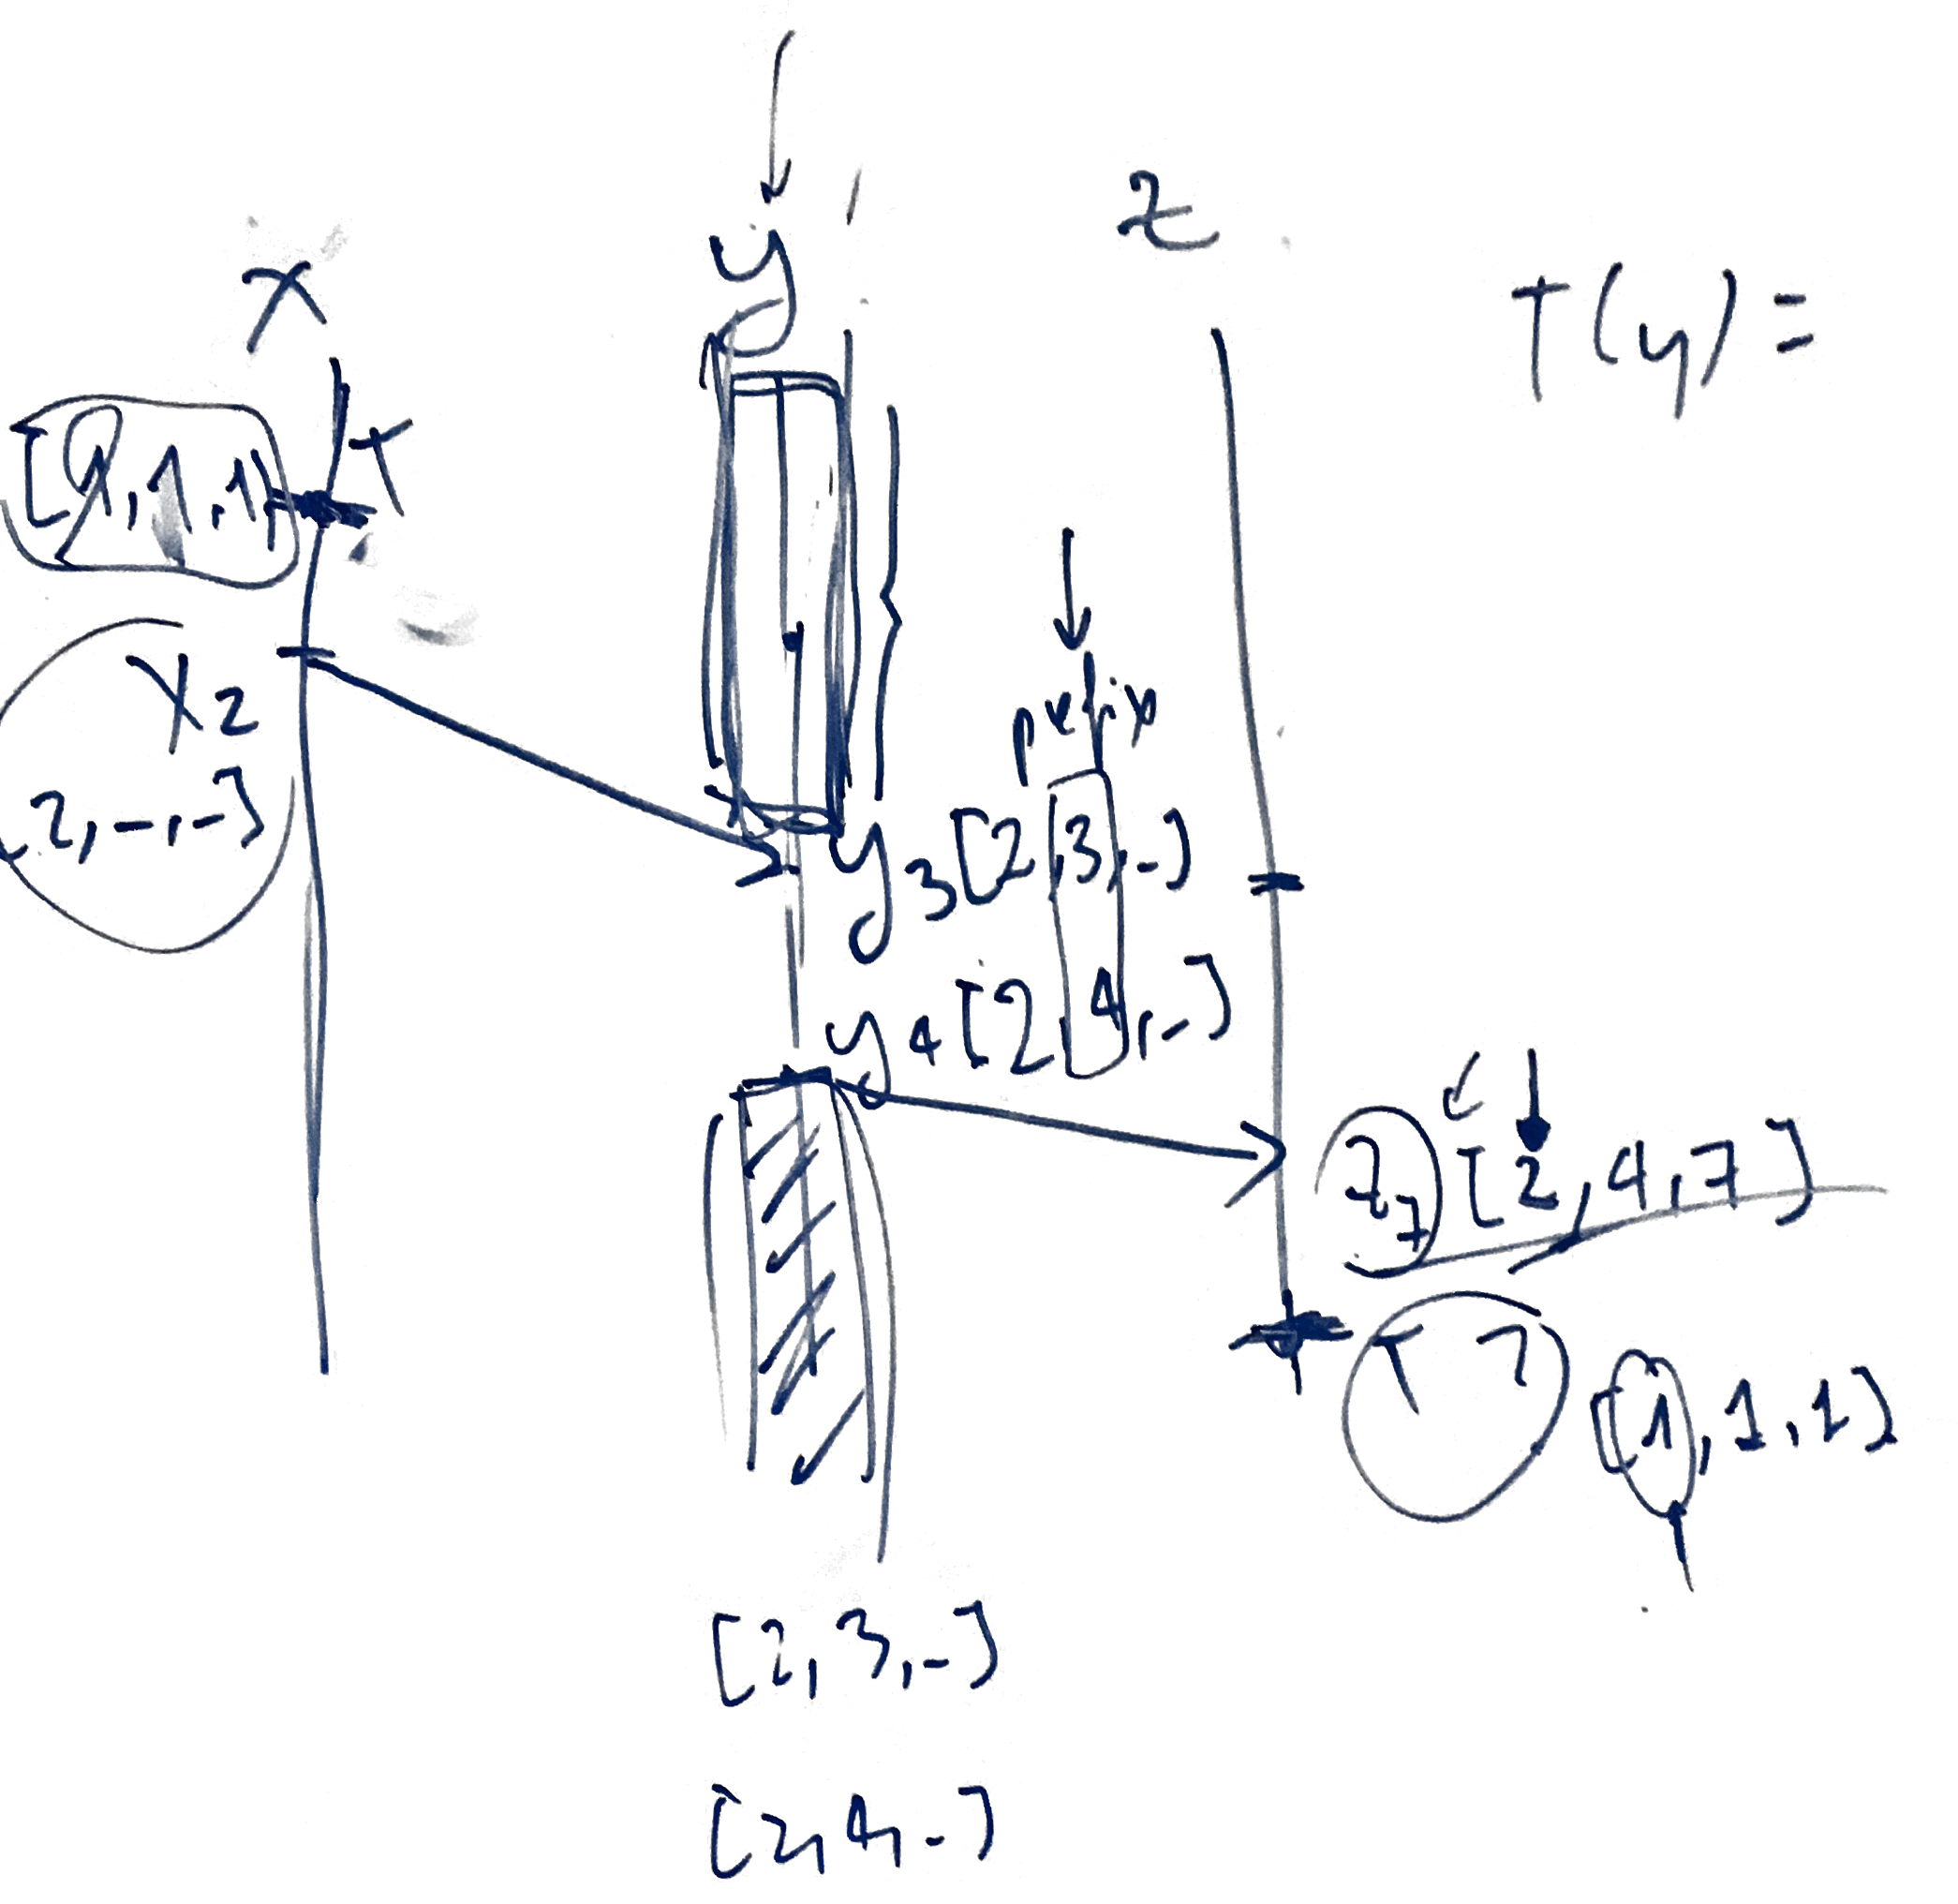 y
z
x
T(y) =
[1,1,1]
T
x2
prefix
2,-,-]
y3[2,3,-]
y4[2,4,-]
z7 [2,4,7]
T ?
[1,1,1]
[2,3,-]
[2,4,-]